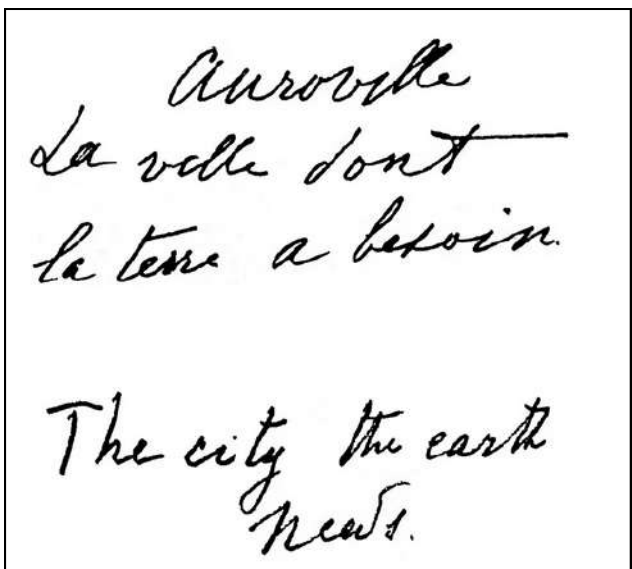 Auroville
La ville dont
la terre a besoin.
The city the earth
needs.